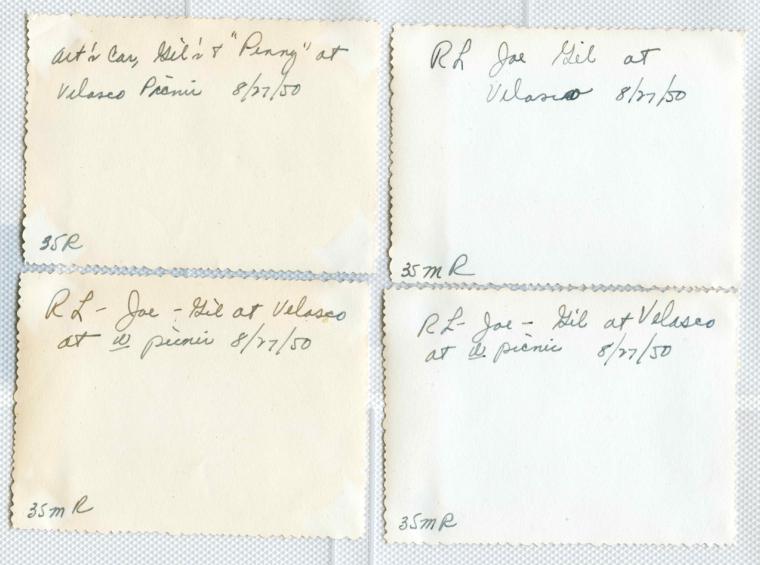 Art's Car, Gil's & "Penny" at
Velasco Picnic 8/27/50
35R
RL Joe Gil at
Velasco 8/27/50
35mR
RL - Joe - Gil at Velasco
at picnic 8/27/50
35mR
RL - Joe - Gil at Velasco
at picnic 8/27/50
35mR